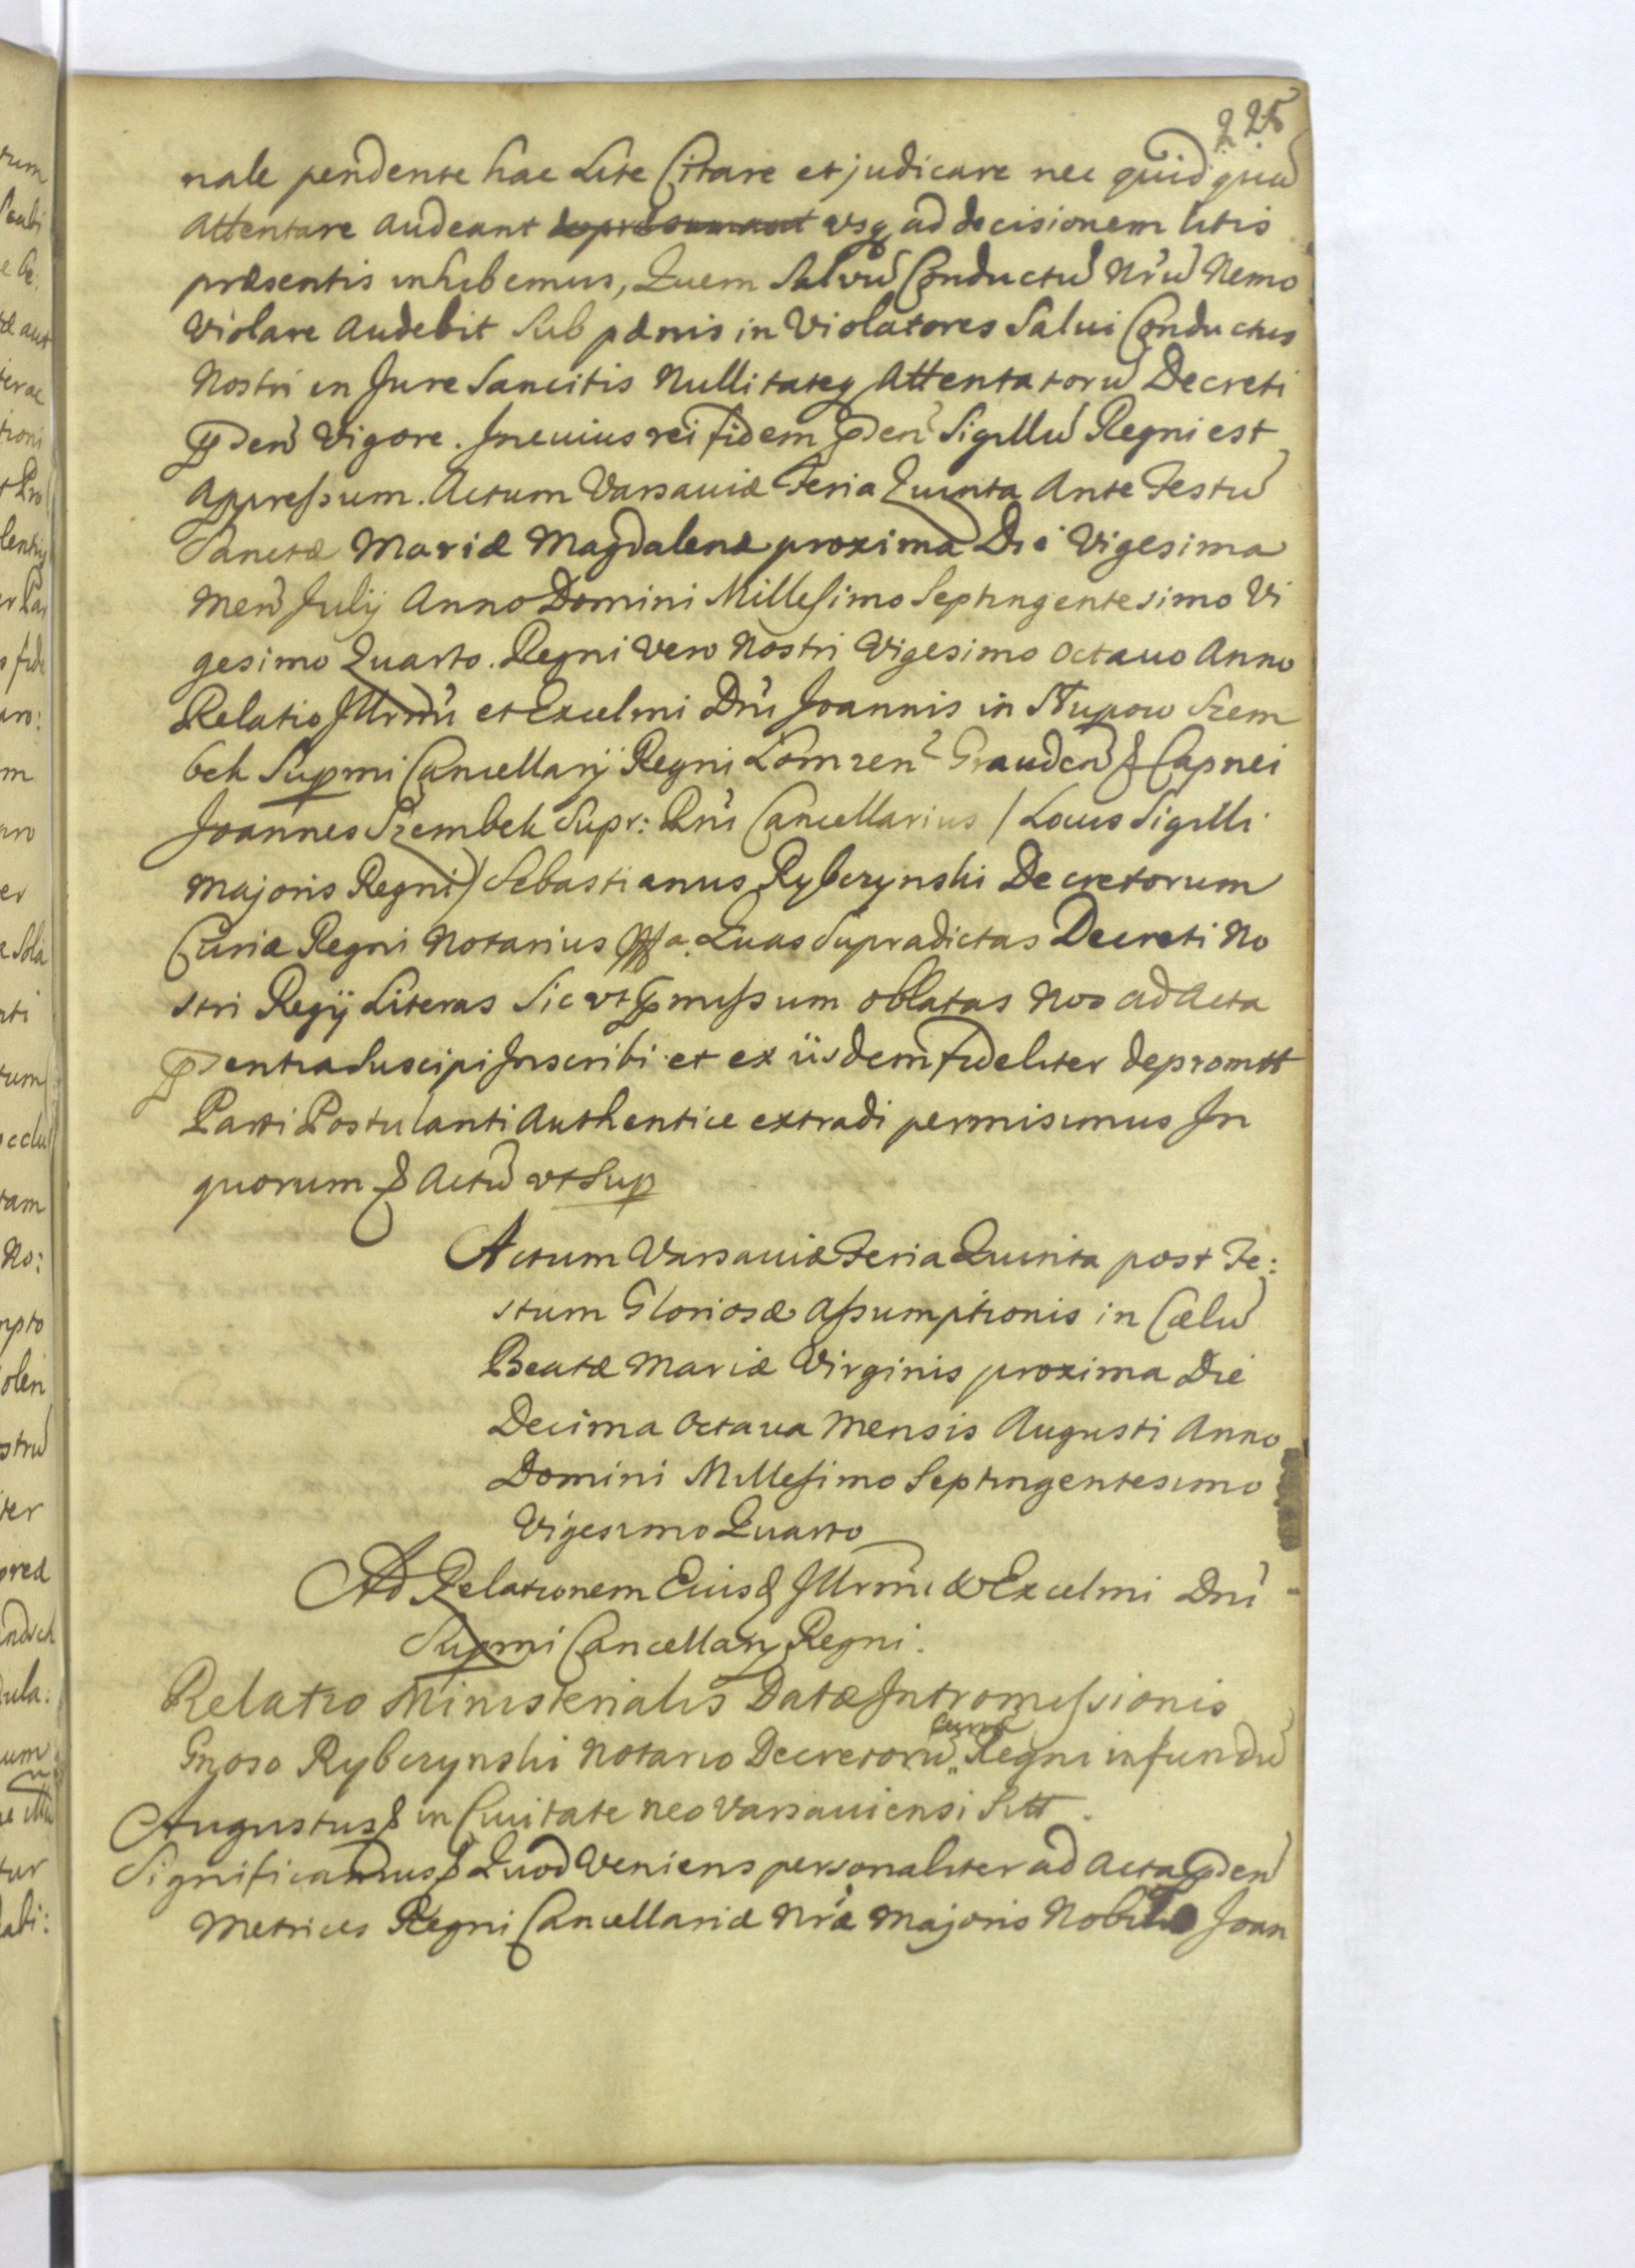 225
nale pendente hac Lite Citare et judicare nec quidquã
Attentare audeant usq ad decisionem litis
præsentis inhibemus, Quem Salvũ Conductũ Nrũ Nemo
violare audebit Sub pænis in Violatores Salui Conductus
Nostri in Jure Sancitis Nullitateq Attentatorũ Decreti
pñden Vigore. In cuius rei fidem pñden Sigillũ Regni est
Appressum. Actum Varsauiæ Feria Quinta Ante Festũ
Sanctæ Mariæ Magdalenæ proxima Die Vigesima
Men Julij Anno Domini Millesimo Septingentesimo Vi
gesimo Quarto. Regni vero Nostri Vigesimo Octauo Anno
Relatio Illrmi et Excelmi Dni Joannis in Słupow Szem
bek Supmi Cancellarij Regni Łomzen Grauden & Capnei
Joannes Szembek Supr: Rni Cancellarius / Locus Sigilli
Majoris Regni / Sebastianus Rybczynski Decretorum
Curiæ Regni Notarius Quas Supradictas Decreti No
stri Regij Literas Sic ut pmissum oblatas Nos ad Acta
pñdentia Suscipi Inscribi et ex iisdem fideliter depromtt
Parti Postulanti Authentice extradi permisimus In
quorum & Actũ ut Sup
Actum Varsauiæ Feria Quinta post Fe:
stum Gloriosæ Assumptionis in Cælũ
Beatæ Mariæ Virginis proxima Die
Decima Octaua Mensis Augusti Anno
Domini Millesimo Septingentesimo
Vigesimo Quarto
Ad Relationem Eiusd Illrmi & Excelmi Dni
Supmi Cancellarij Regni.
Relatio Ministerialis Datæ Intromissionis
Gnoso Rybczynski Notario Decretorũ Curiæ Regni in fundũ
Augustus & in Ciuitate Neo Varsauiensi Sitt.
Significamus & Quod Veniens personaliter ad Acta pñden
Metrices Regni Cancellariæ Nræ Majoris Nobilis Joan